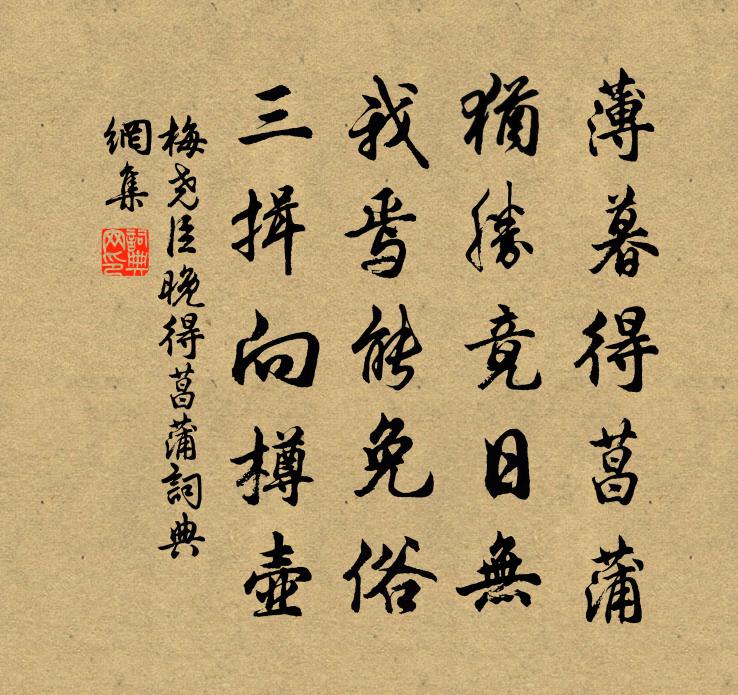 薄暮得菖蒲
猶勝竟日無
我焉能免俗
三揖向樽壺
梅尧臣晚得菖蒲詞典
網集
詞典
网印